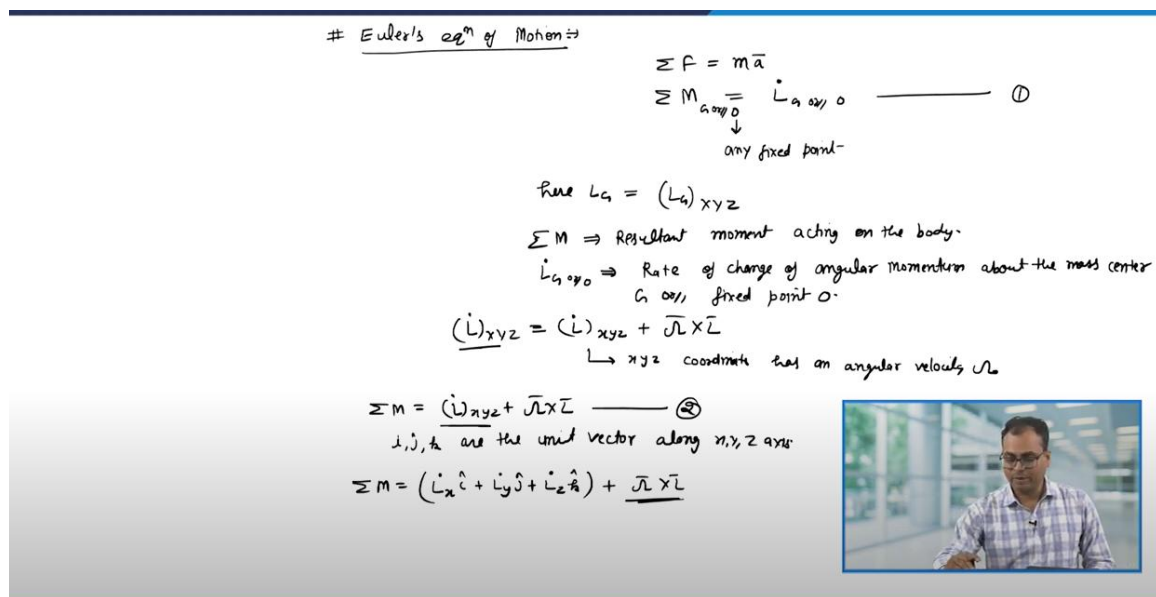 # Euler's eqⁿ of Motion :→
ΣF = mā
ΣM_G or// O = L̇_G or// O ——— ①
↓
any fixed point-
here L_G = (L_G)_XYZ
ΣM ⇒ Resultant moment acting on the body.
L̇_G or// O ⇒ Rate of change of angular momentum about the mass center
G or// fixed point O.
(L̇)_XYZ = (L̇)_xyz + Ω̄ × L̄
↳ xyz coordinate has an angular velocity Ω
ΣM = (L̇)_xyz + Ω̄ × L̄ ——— ②
i, j, k are the unit vector along x, y, z axis.
ΣM = (L̇_x î + L̇_y ĵ + L̇_z k̂) + Ω̄ × L̄